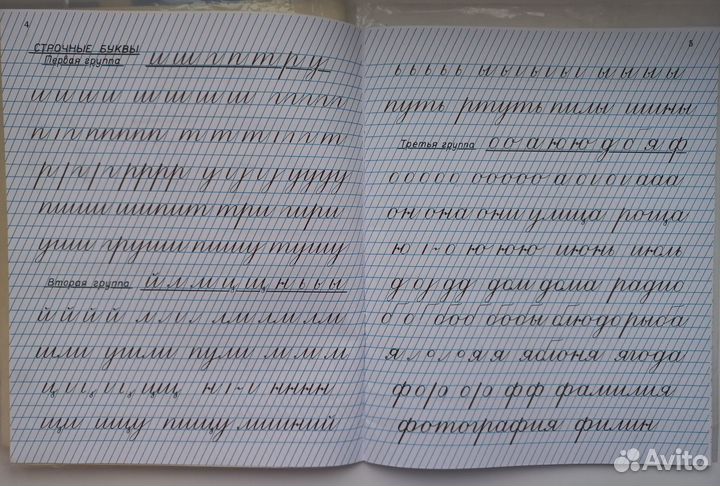 4
СТРОЧНЫЕ БУКВЫ
Первая группа и ш г п т р у
и и и и ш ш ш ш г г г г
п г п п п п п т т т т т
р г р р р р у у у у у
пиши шипит три гири
уши груши пишу тушу
Вторая группа й л м ц щ н ь ъ ы
й й й й л л л лм лм лм
шли ушли пули м м м
ц ц щ щ н н н н н
щи ищу пищу лишний
5
ь ь ь ь ь ы ы ы ы ы ы ы
путь ртуть пилы шины
Третья группа о о а ю ю д б я ф
о о о о о о о о о о а о а а а
он она они улица роща
ю о ю ю ю июнь июль
д о д д дом дома радио
о б б б б бобы блюдо рыба
я л о л о я я яблоня ягода
ф о р о р ф ф фамилия
фотография филин
Avito